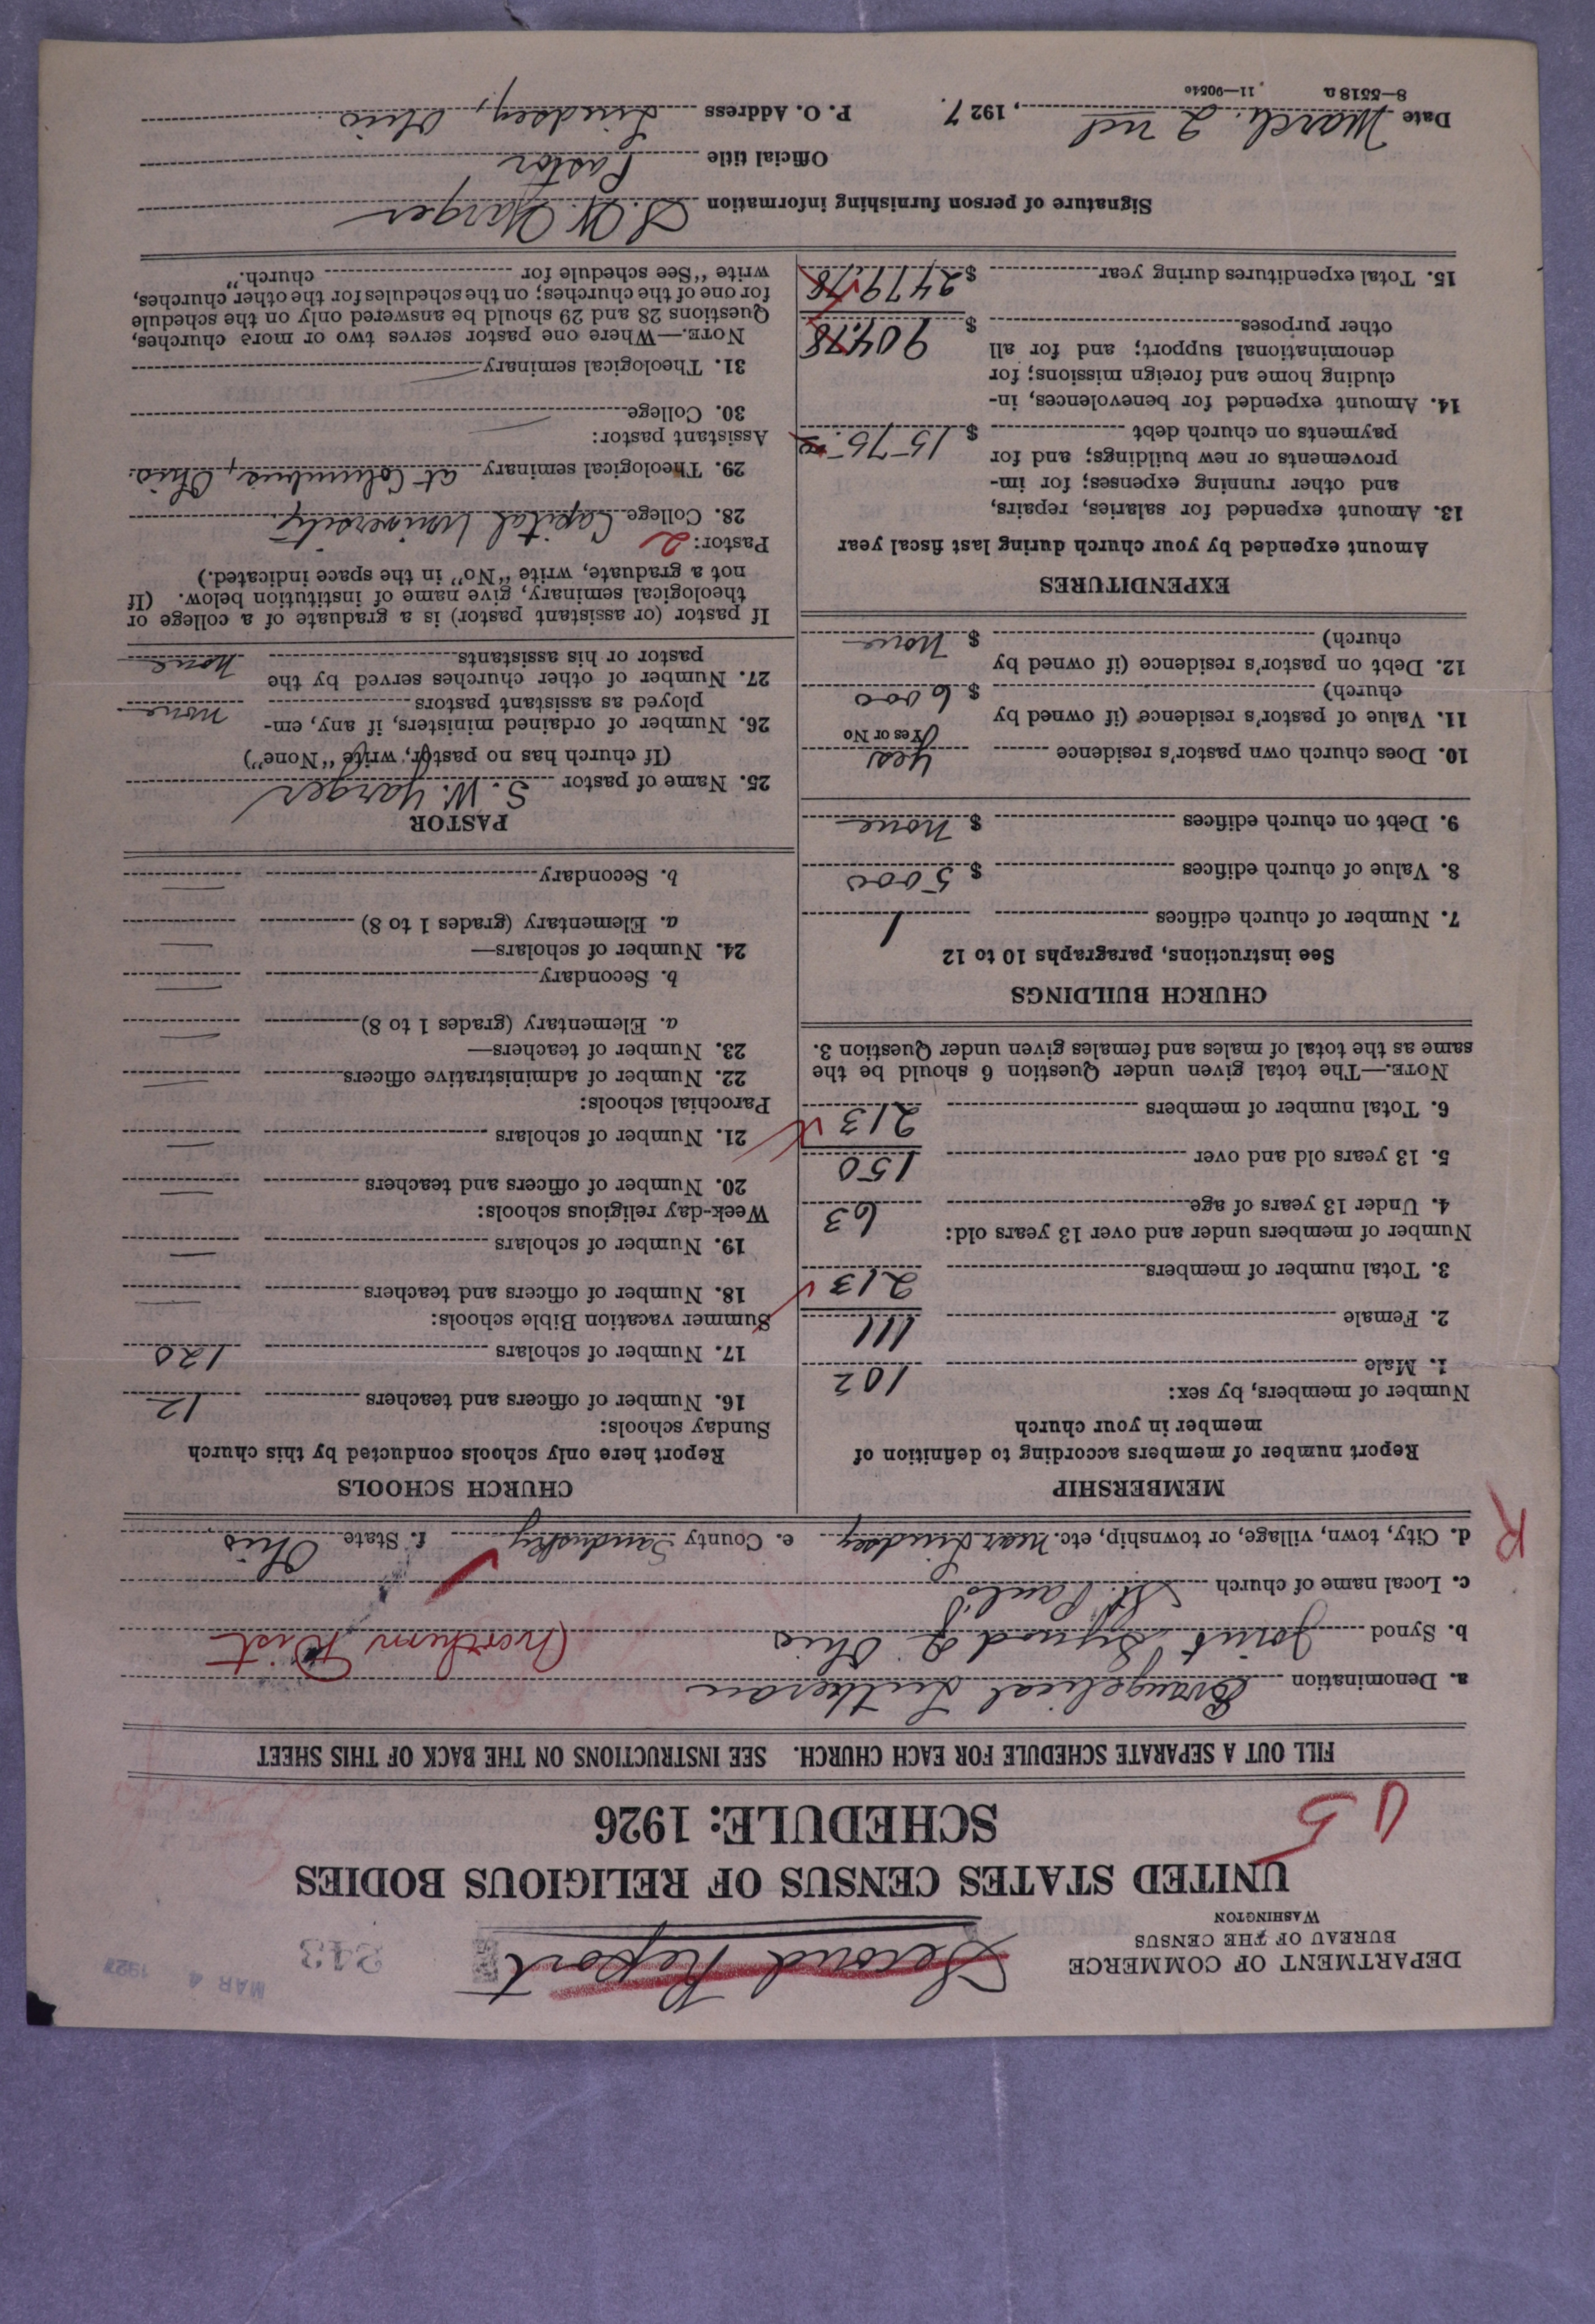 DEPARTMENT OF COMMERCE
BUREAU OF THE CENSUS
WASHINGTON
Second Report
243
MAR 4 1927
UNITED STATES CENSUS OF RELIGIOUS BODIES
SCHEDULE: 1926
FILL OUT A SEPARATE SCHEDULE FOR EACH CHURCH. SEE INSTRUCTIONS ON THE BACK OF THIS SHEET
a. Denomination Evangelical Lutheran
b. Synod Joint Synod of Ohio (Northern Dist
c. Local name of church St. Paul's
d. City, town, village, or township, etc. Near Lindsey e. County Sandusky f. State Ohio
R
MEMBERSHIP
Report number of members according to definition of
member in your church
Number of members, by sex:
1. Male 102
2. Female 111
3. Total number of members 213
Number of members under and over 13 years old:
4. Under 13 years of age 63
5. 13 years old and over 150
6. Total number of members 213
NOTE.—The total given under Question 6 should be the
same as the total of males and females given under Question 3.
CHURCH BUILDINGS
See instructions, paragraphs 10 to 12
7. Number of church edifices 1
8. Value of church edifices $ 5000
9. Debt on church edifices $ None
10. Does church own pastor's residence Yes
Yes or No
11. Value of pastor's residence (if owned by
church) $ 6000
12. Debt on pastor's residence (if owned by
church) $ None
EXPENDITURES
Amount expended by your church during last fiscal year
13. Amount expended for salaries, repairs,
and other running expenses; for im-
provements or new buildings; and for
payments on church debt $ 1575.
14. Amount expended for benevolences, in-
cluding home and foreign missions; for
denominational support; and for all
other purposes $ 904.78
15. Total expenditures during year $ 2479.78
CHURCH SCHOOLS
Report here only schools conducted by this church
Sunday schools:
16. Number of officers and teachers 12
17. Number of scholars 120
Summer vacation Bible schools:
18. Number of officers and teachers —
19. Number of scholars —
Week-day religious schools:
20. Number of officers and teachers —
21. Number of scholars —
Parochial schools:
22. Number of administrative officers —
23. Number of teachers—
a. Elementary (grades 1 to 8) —
b. Secondary —
24. Number of scholars—
a. Elementary (grades 1 to 8) —
b. Secondary —
PASTOR
25. Name of pastor S. W. Yarger
(If church has no pastor, write "None")
26. Number of ordained ministers, if any, em-
ployed as assistant pastors none
27. Number of other churches served by the
pastor or his assistants none
If pastor (or assistant pastor) is a graduate of a college or
theological seminary, give name of institution below. (If
not a graduate, write "No" in the space indicated.)
Pastor: 2
28. College Capital University
29. Theological seminary at Columbus, Ohio.
Assistant pastor:
30. College —
31. Theological seminary —
NOTE.—Where one pastor serves two or more churches,
Questions 28 and 29 should be answered only on the schedule
for one of the churches; on the schedules for the other churches,
write "See schedule for church."
Signature of person furnishing information S. W. Yarger
Official title Pastor
Date March 2nd, 1927. P. O. Address Lindsey, Ohio
8—5518 a 11—9054c